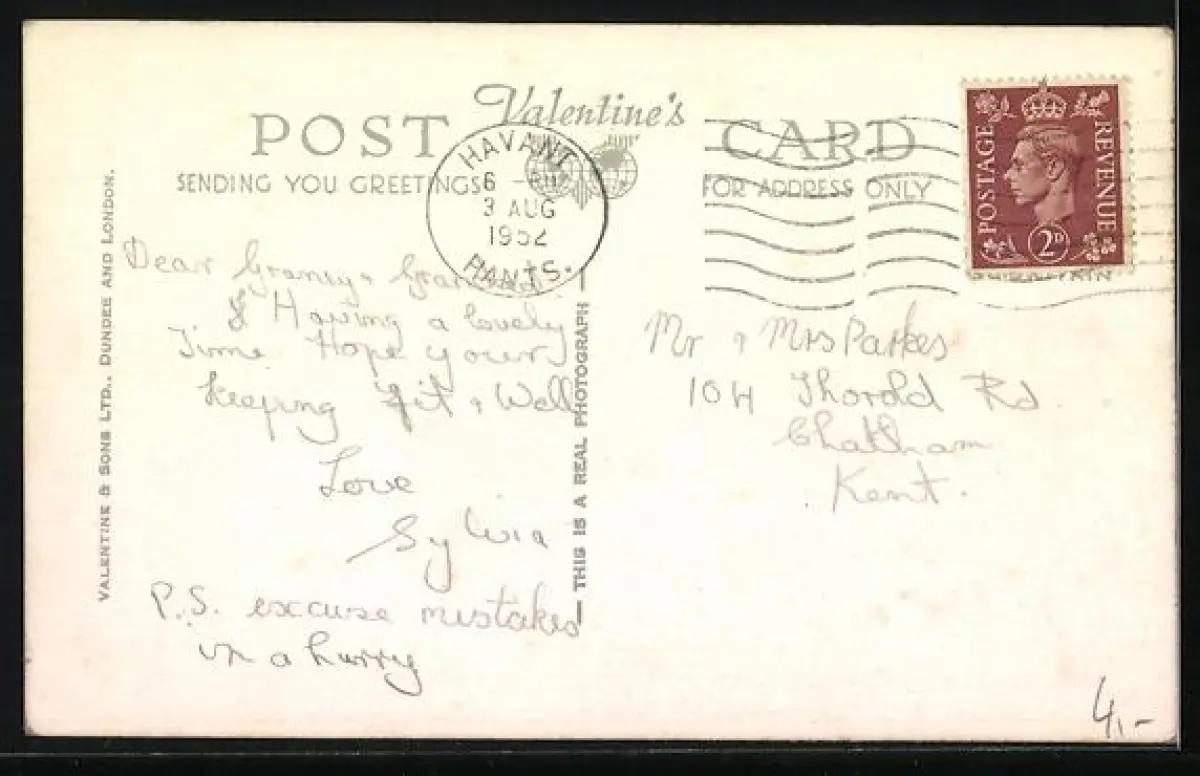 Valentine's
POST CARD
SENDING YOU GREETINGS
FOR ADDRESS ONLY
HAVANT
6 - PM
3 AUG
1952
HANTS.
POSTAGE
REVENUE
2D
VALENTINE & SONS LTD., DUNDEE AND LONDON.
Dear Granny & Grandad
Having a lovely
Time Hope your
keeping fit & Well
Love
Sylvia
P.S. excuse mistakes
in a hurry
— THIS IS A REAL PHOTOGRAPH —
Mr & Mrs Parkes
104 Thorold Rd.
Chatham
Kent.
4,-